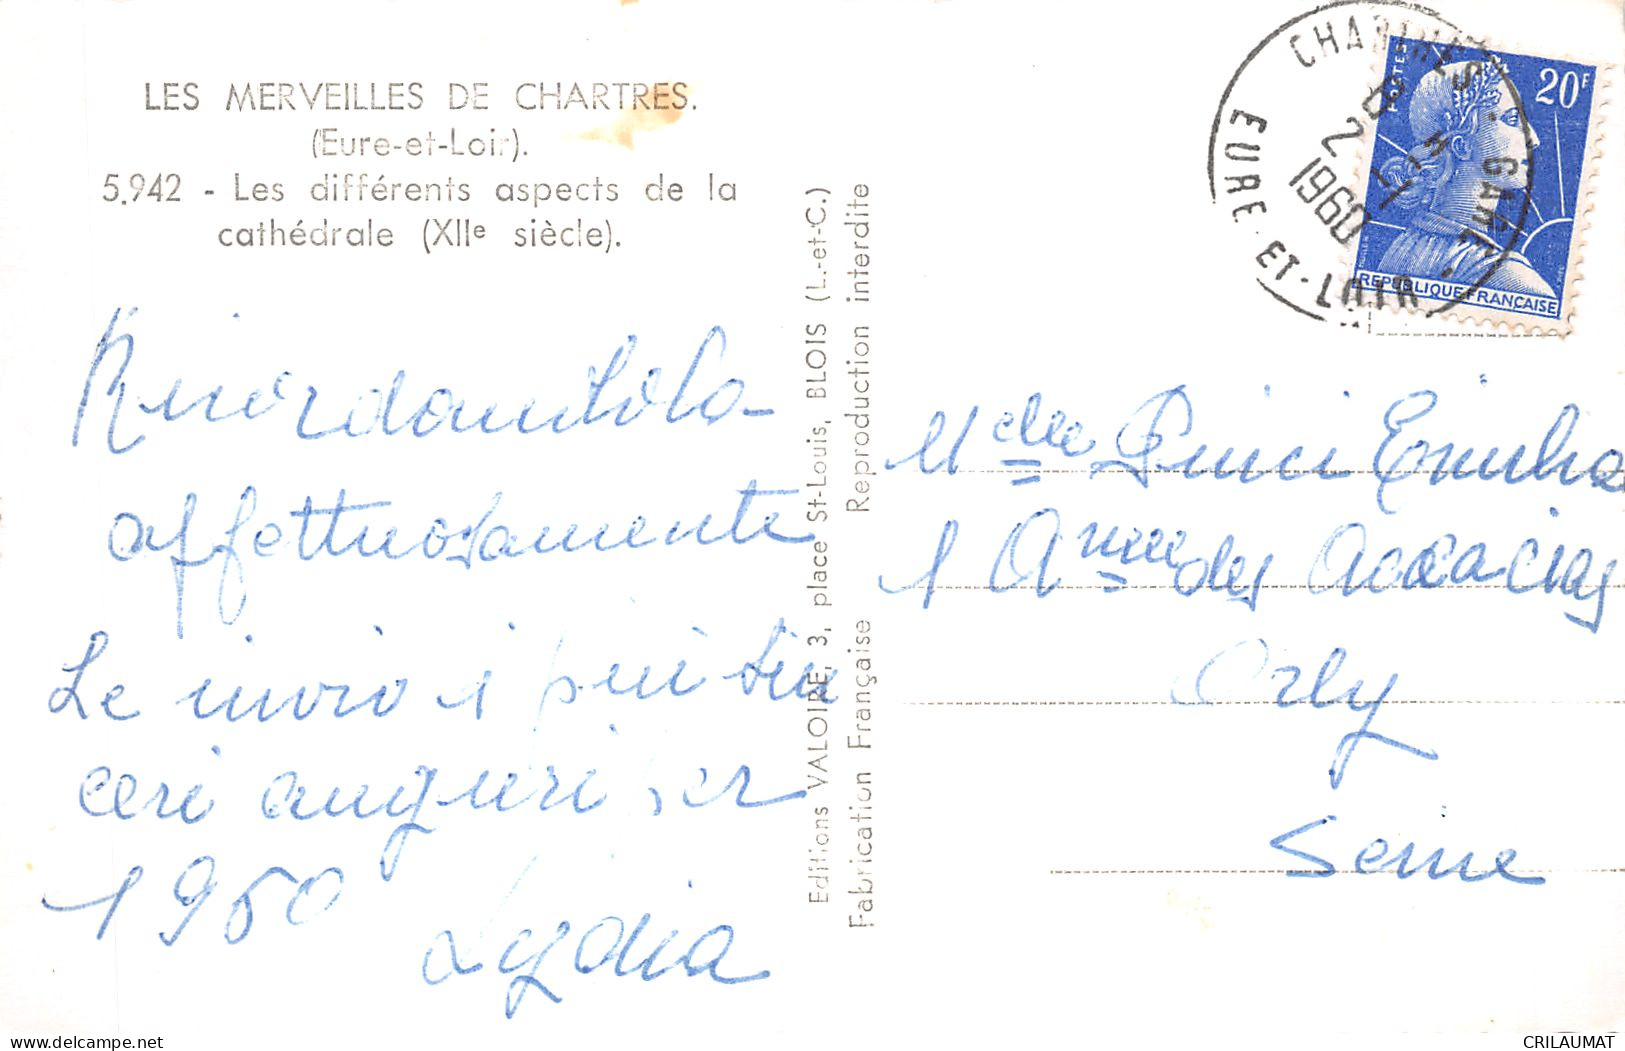 LES MERVEILLES DE CHARTRES.
(Eure-et-Loir).
5.942 - Les différents aspects de la
cathédrale (XIIe siècle).
Ricordandola
affettuosamente
Le invio i più sin
ceri auguri per
1960
Lydia
Editions VALOIRE, 3, place St-Louis, BLOIS (L.-et-C.)
Fabrication Française Reproduction interdite
CHARTRES - GARE
EURE-ET-LOIR
2-1
1960
POSTES
20F
REPUBLIQUE FRANÇAISE
Melle Pinci Emilia
1 Anue des Accacias
Orly
Seine
CRILAUMAT